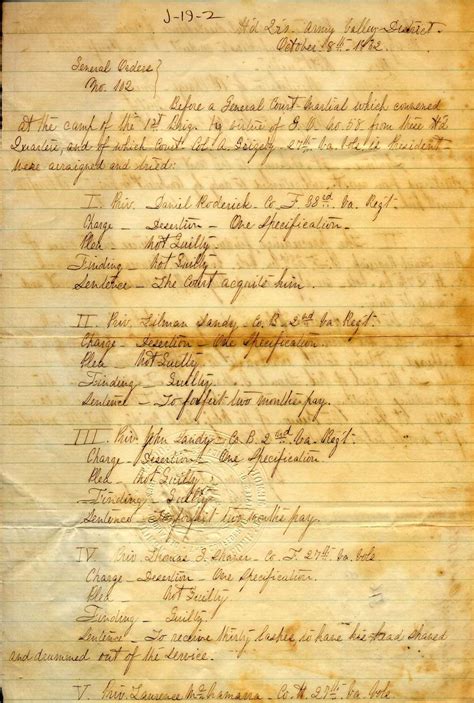 J-19-2
H'd Qrs. Army Valley District.
October 18th 1862
General Orders
No. 112
Before a General Court Martial which convened
at the camp of the 1st Brign. by virtue of G. O. No. 58 from these H'd
Quarters, and of which Court Col. A. 27th Va. Vols. is President
were arraigned and tried:
I. Priv. Daniel Roderick - Co. F 33rd Va. Reg't.
Charge - Desertion - One Specification.
Plea - Not Guilty.
Finding - Not Guilty.
Sentence - The Court acquits him.
II. Priv. Tilman Sandy - Co. B. 2nd Va. Regt.
Charge - Desertion - One Specification.
Plea - Not Guilty.
Finding - Guilty.
Sentence - To forfeit two months pay.
III. Priv. John Sandy - Co. B. 2nd Va. Reg't.
Charge - Desertion - One Specification
Plea - Not Guilty.
Finding - Guilty
Sentence - To forfeit two months pay.
IV Priv. Thomas - Co. F. 27th Va. Vols.
Charge - Desertion - One Specification.
Plea - Not Guilty
Finding - Guilty.
Sentence - To receive thirty lashes, to have his head shaved
and drummed out of the service.
V. Priv. Laurence McNamarra - Co. H. 27th Va. Vols.